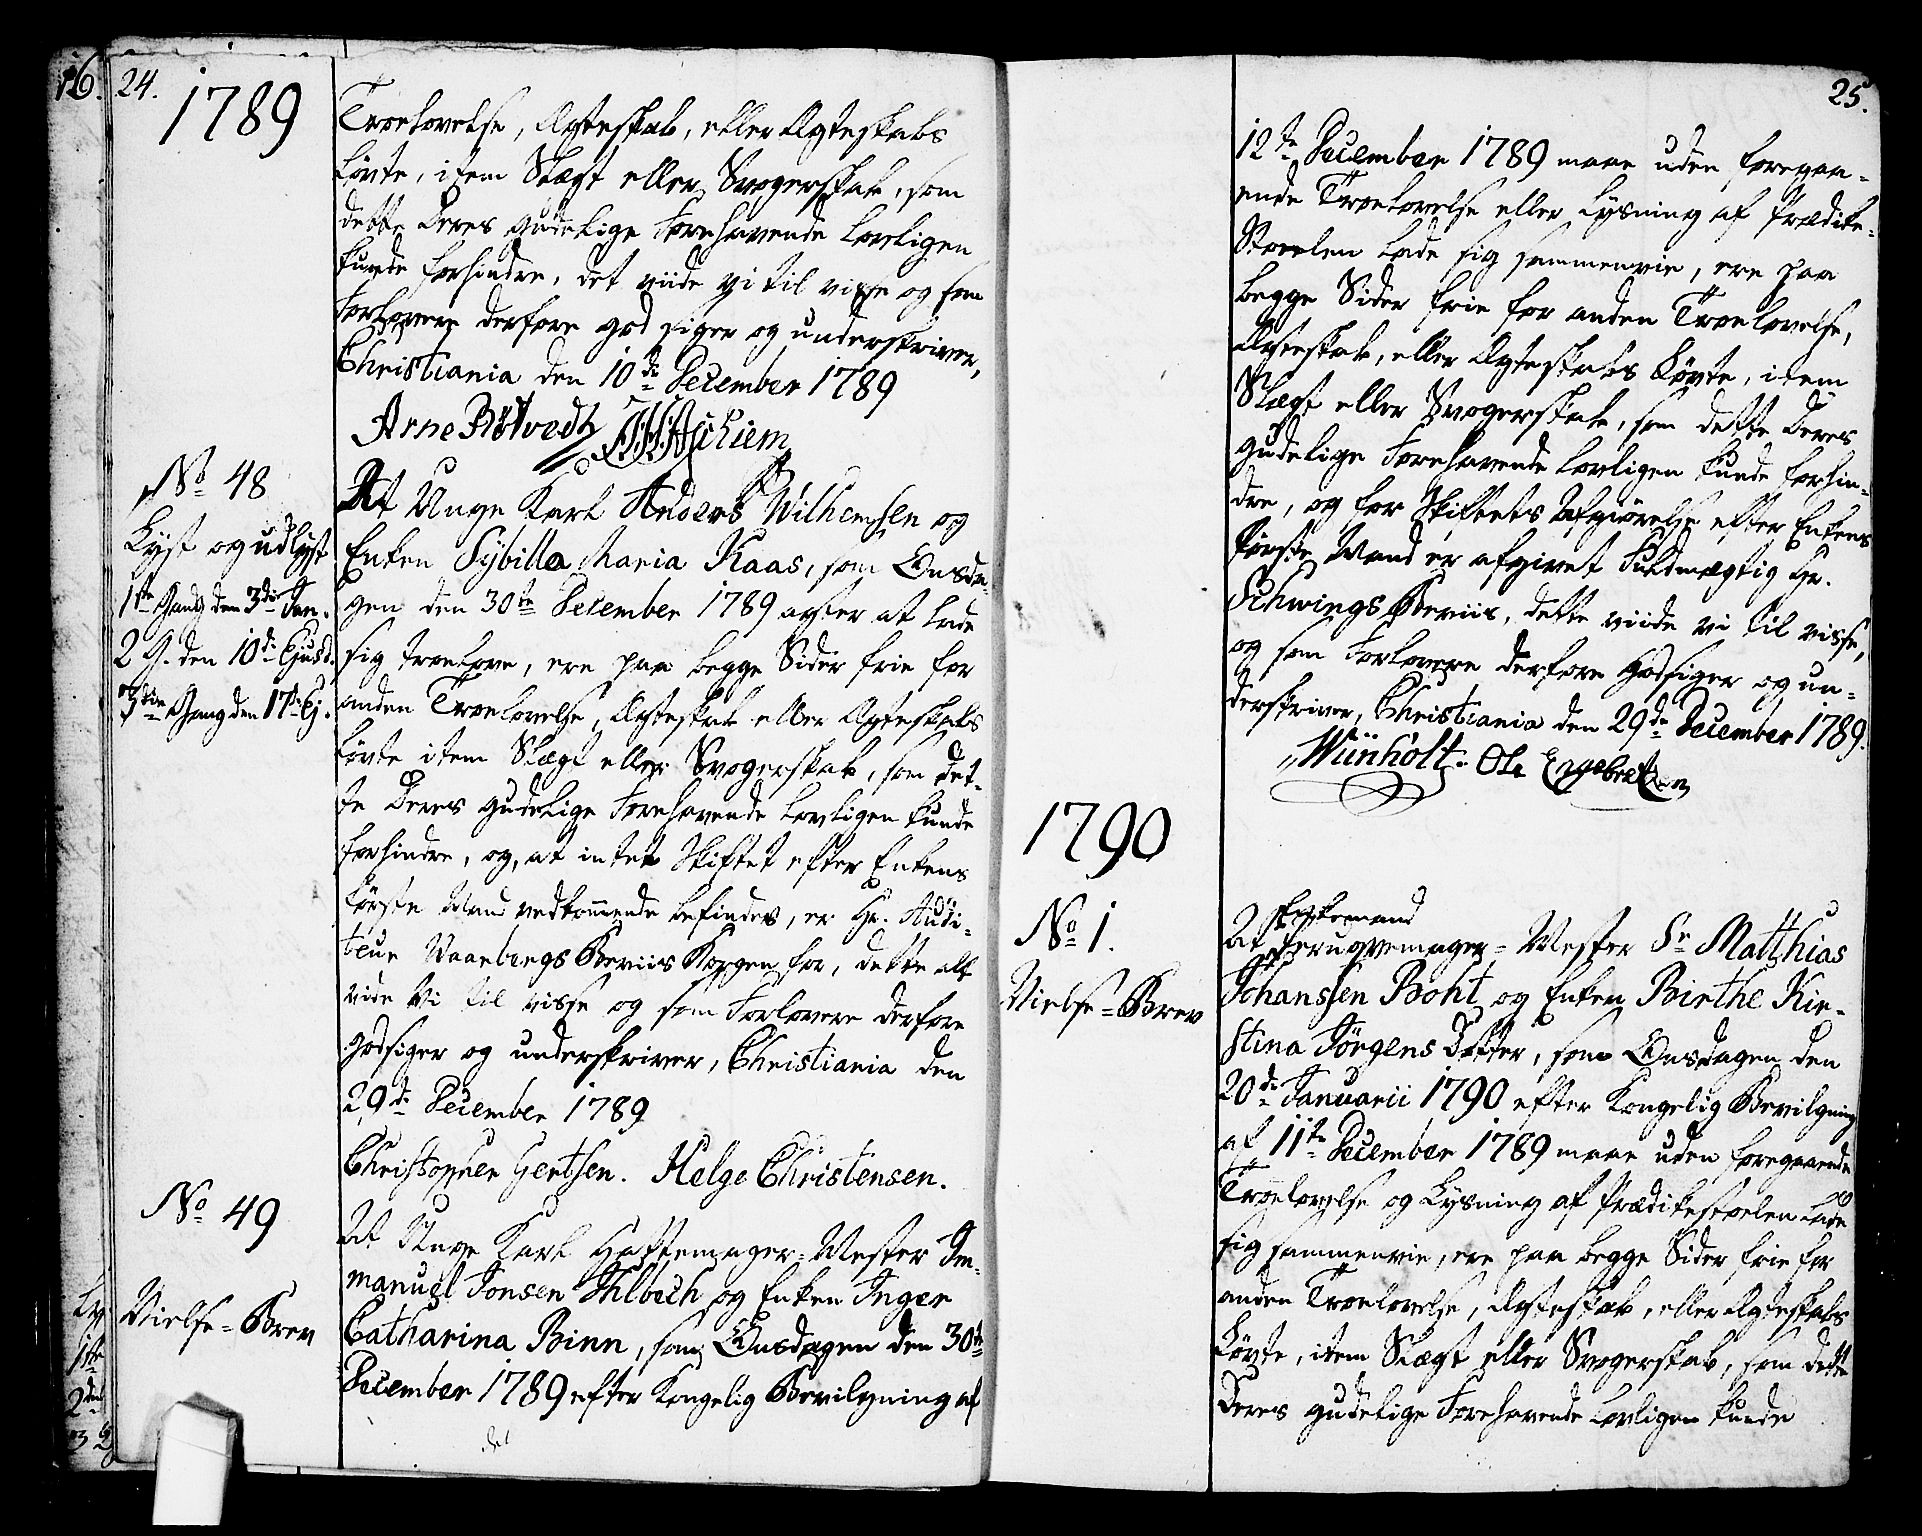 24.
1789
Troelovelse, Ægteskab, eller Ægteskabs
Løvte, item Slægt eller Svogerskab, som
dette Deres gudelige Forehavende lovligen
kunde forhindre, det viide vi til visse og som
Forlovere derfore god siger og underskriver,
Christiania den 10de December 1789
Arne Rötvedt
No 48
Lyst og udlyst
1ste Gang den 3die Jan.
2 G. den 10de Ejusd.
3die Gang den 17de Ej.
At Unge Karl Anders Wilhemsen og
Enken Sybilla Maria Kaas, som Onsda-
gen den 30te December 1789 agter at lade
sig troelove, ere paa begge Sider frie for
anden Troelovelse, Ægteskab eller Ægteskabs
Løvte item Slægt eller Svogerskab, som det-
te Deres gudelige Forehavende lovligen kunde
forhindre, og, at intet Skiftet efter Enkens
første Mand vedkommende befindes, er Hr. Audi-
teur Waarbergs Beviis Borgen for, dette alt
viide Vi til visse og som Forlovere derfore
godsiger og underskriver, Christiania den
29de December 1789
Christopher Gertsen. Helge Christensen.
No 49
Vielse-Brev
At Unge Karl Hattemager-Mester Im-
manuel Jonsen Ahlbech og Enken Inger
Catharina Binn, som Onsdagen den 30te
December 1789 efter Kongelig Bevilgning af
25.
12te December 1789 maae uden foregaa-
ende Troelovelse eller Lysning af Prædike-
Stoelen lade sig sammenvie, ere paa
begge Sider frie for anden Troelovelse,
Ægteskab, eller Ægteskabs Løvte, item
Slægt eller Svogerskab, som dette Deres
gudelige Forehavende lovligen kunde forhin-
dre, og for Skiftets Afgiørelse efter Enkens
første Mand er afgivet Fuldmægtig Hr.
Schwings Beviis, dette viide vi til visse,
og som Forlovere derfore godsiger og un-
derskriver, Christiania den 29de December 1789.
Münholt. Ole Engebretsen
1790
No 1.
Vielse-Brev
At Peruqvemager-Mester Sr Matthias
Johanssen Boht og Enken Birthe Kir-
stina Jörgens Datter, som Onsdagen den
20de Januarii 1790 efter Kongelig Bevilgning
af 11te December 1789 maae uden foregaaende
Troelovelse og Lysning af Prædikestoelen lade
sig sammenvie, ere paa begge Sider frie for
anden Troelovelse, Ægteskab, eller Ægteskabs
Løvte, item Slægt eller Svogerskab, som dette
Deres gudelige Forehavende lovligen kunde